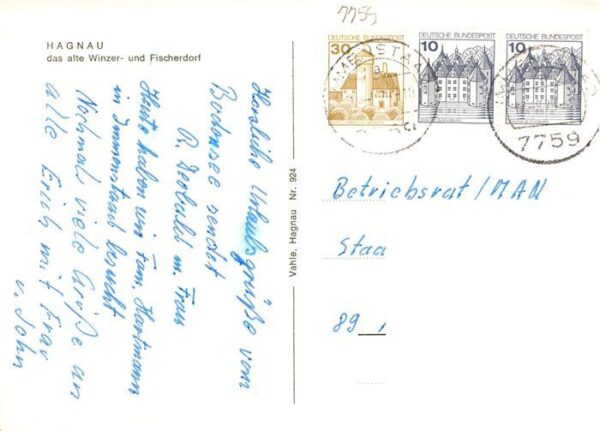 HAGNAU
das alte Winzer- und Fischerdorf
Herzliche Urlaubsgrüße vom
Bodensee sendet
R. m. Frau
Heute haben wir Fam. Hartmann
in Immenstaad besucht
Nochmal viele Grüße an
alle Erich mit Frau
u. Sohn
Vahle, Hagnau Nr. 924
7759
DEUTSCHE BUNDESPOST
30
DEUTSCHE BUNDESPOST
10
DEUTSCHE BUNDESPOST
10
7759
Betriebsrat/MAN
89